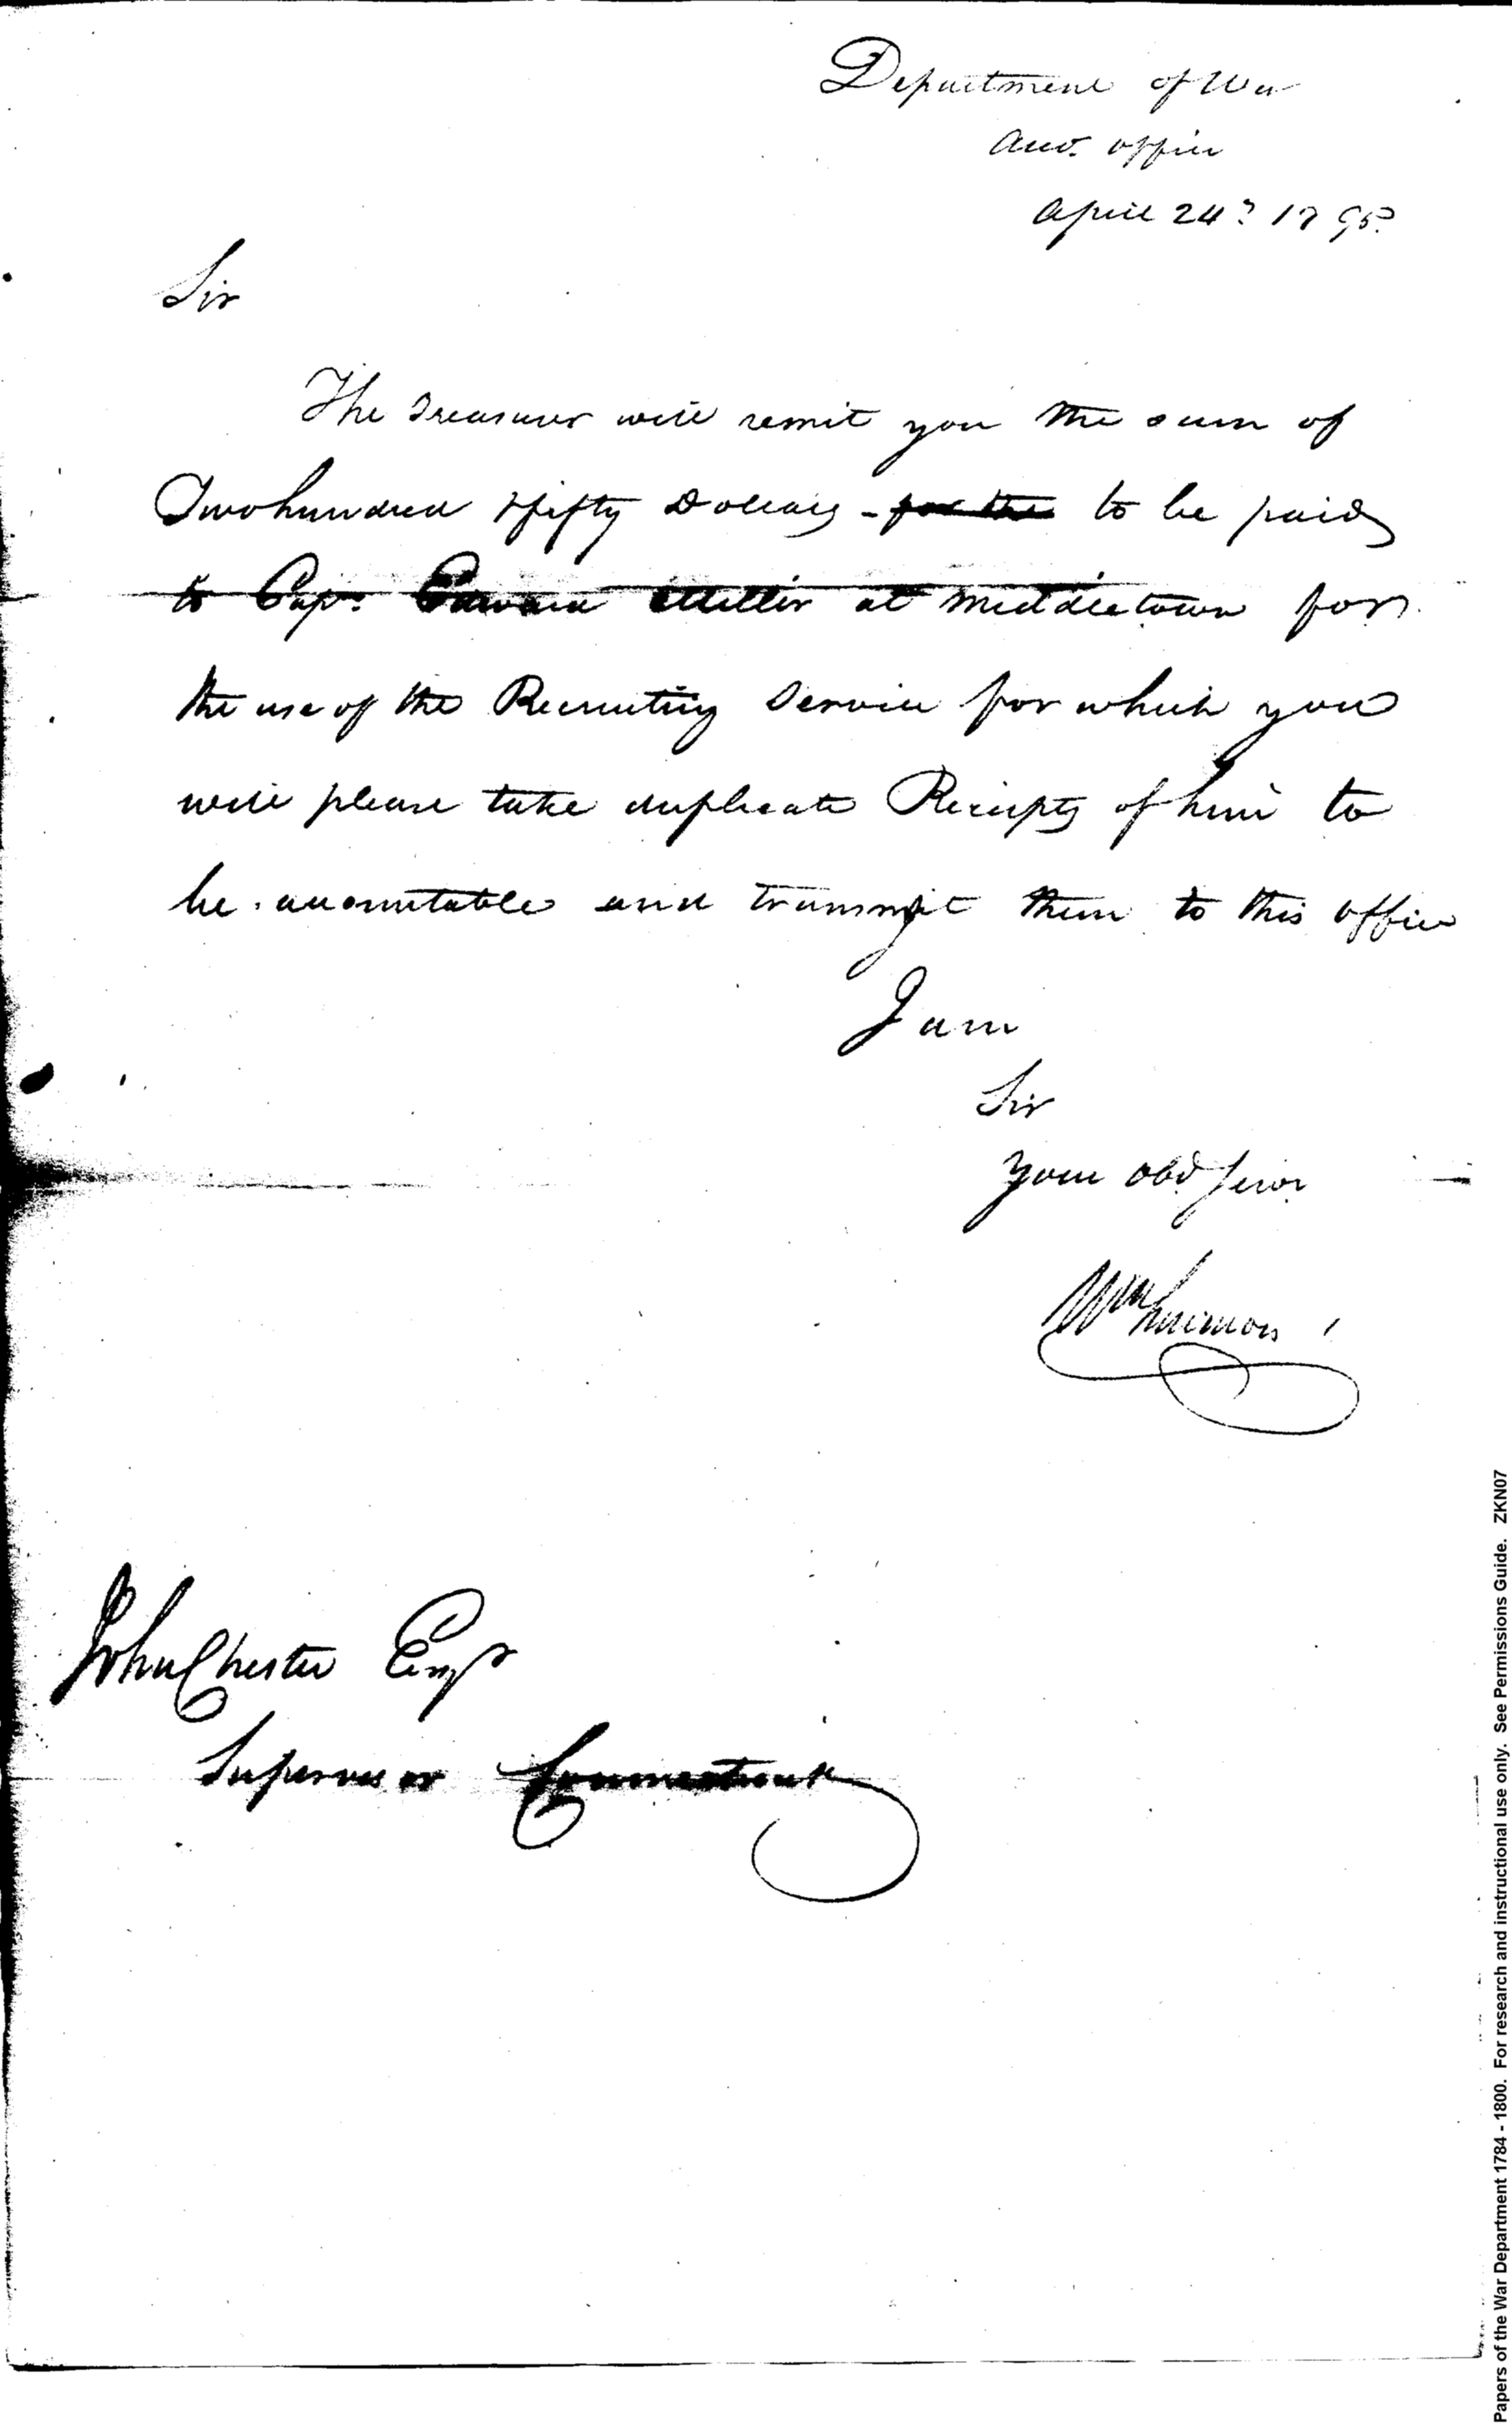 Department of War
Acct. office
April 24th 1795
Sir
The Treasurer will remit you the sum of
Two hundred & fifty Dollars - for the to be paid
to Capt. Edward Miller at Middletown for
the use of the Recruiting Service for which you
will please take duplicate Receipts of him to
be accountable and transmit them to this office
I am
Sir
Your obd Servt
Wm Simmons
John Chester Esqr
Supervisor Connecticut
Papers of the War Department 1784 - 1800. For research and instructional use only. See Permissions Guide. ZKN07